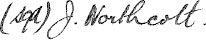 (sgd) J. Northcott.